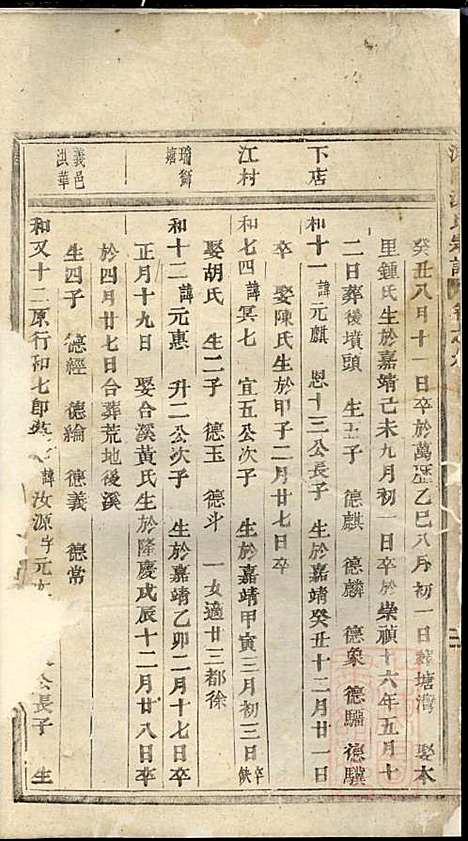 癸丑八月十一日卒於萬歷乙巳八月初一日 塘灣 娶本
里鍾氏生於嘉靖己未九月初一日卒於崇禎十六年五月十
二日葬後墳頭 生五子 德麒 德麟 德象 德驌 德驥
下店
和十一諱元麒 恩十三公長子 生於嘉靖癸丑十二月廿一日
卒 娶陳氏生於甲子二月廿七日卒
江村
和七四諱冥七 宜五公次子 生於嘉靖甲寅三月初三日卒缺
娶胡氏 生二子 德玉 德斗 一女適廿三都徐
瑞獅塘
和十二諱元惠 升二公次子 生於嘉靖乙卯二月十七日卒
正月十九日 娶合溪黃氏生於隆慶戊辰十二月廿八日卒
於四月廿七日合葬荒地後溪
生四子 德經 德綸 德義 德常
義邑洪華
和又十二原行和七郎 諱汝源字元 公長子 生